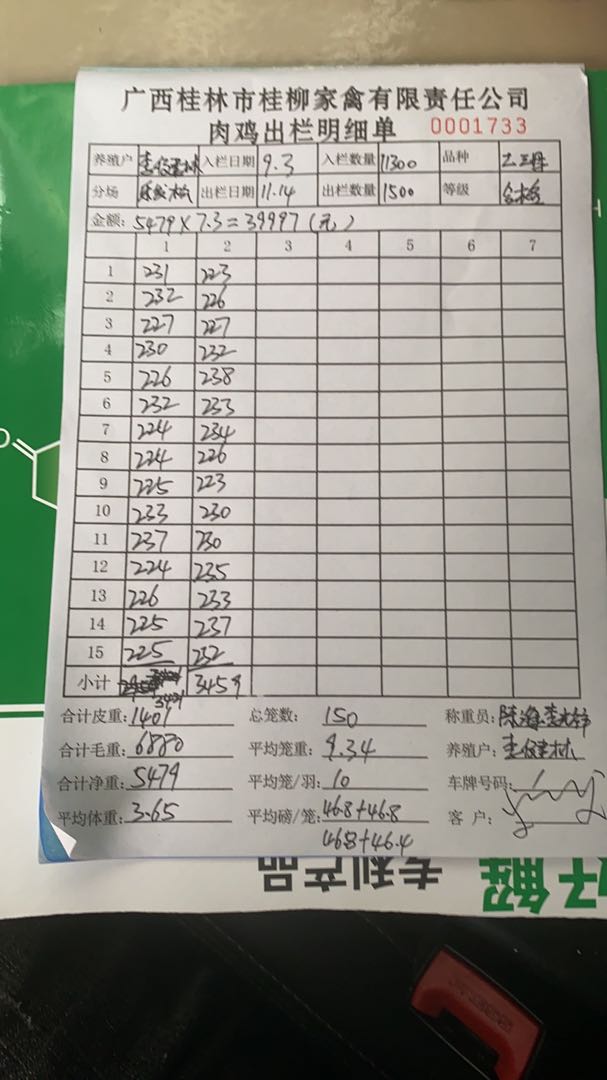 广西桂林市桂柳家禽有限责任公司
肉鸡出栏明细单 0001733
养殖户 李俊建林 入栏日期 9.3 入栏数量 11300 品种
分场 出栏日期 11.14 出栏数量 1500 等级 合格
金额: 5479×7.3=39997(元)
1 2 3 4 5 6 7
1 231 223
2 232 226
3 227 227
4 230 232
5 226 238
6 232 233
7 224 234
8 224 226
9 225 223
10 233 230
11 237 230
12 224 235
13 226 233
14 225 237
15 225 232
小计 3421 3459
合计皮重: 1401 总笼数: 150 称重员:
合计毛重: 6880 平均笼重: 9.34 养殖户:
合计净重: 5479 平均笼/羽: 10 车牌号码:
平均体重: 3.65 平均磅/笼: 46.8+46.8 客户:
46.8+46.4
好解
专利产品